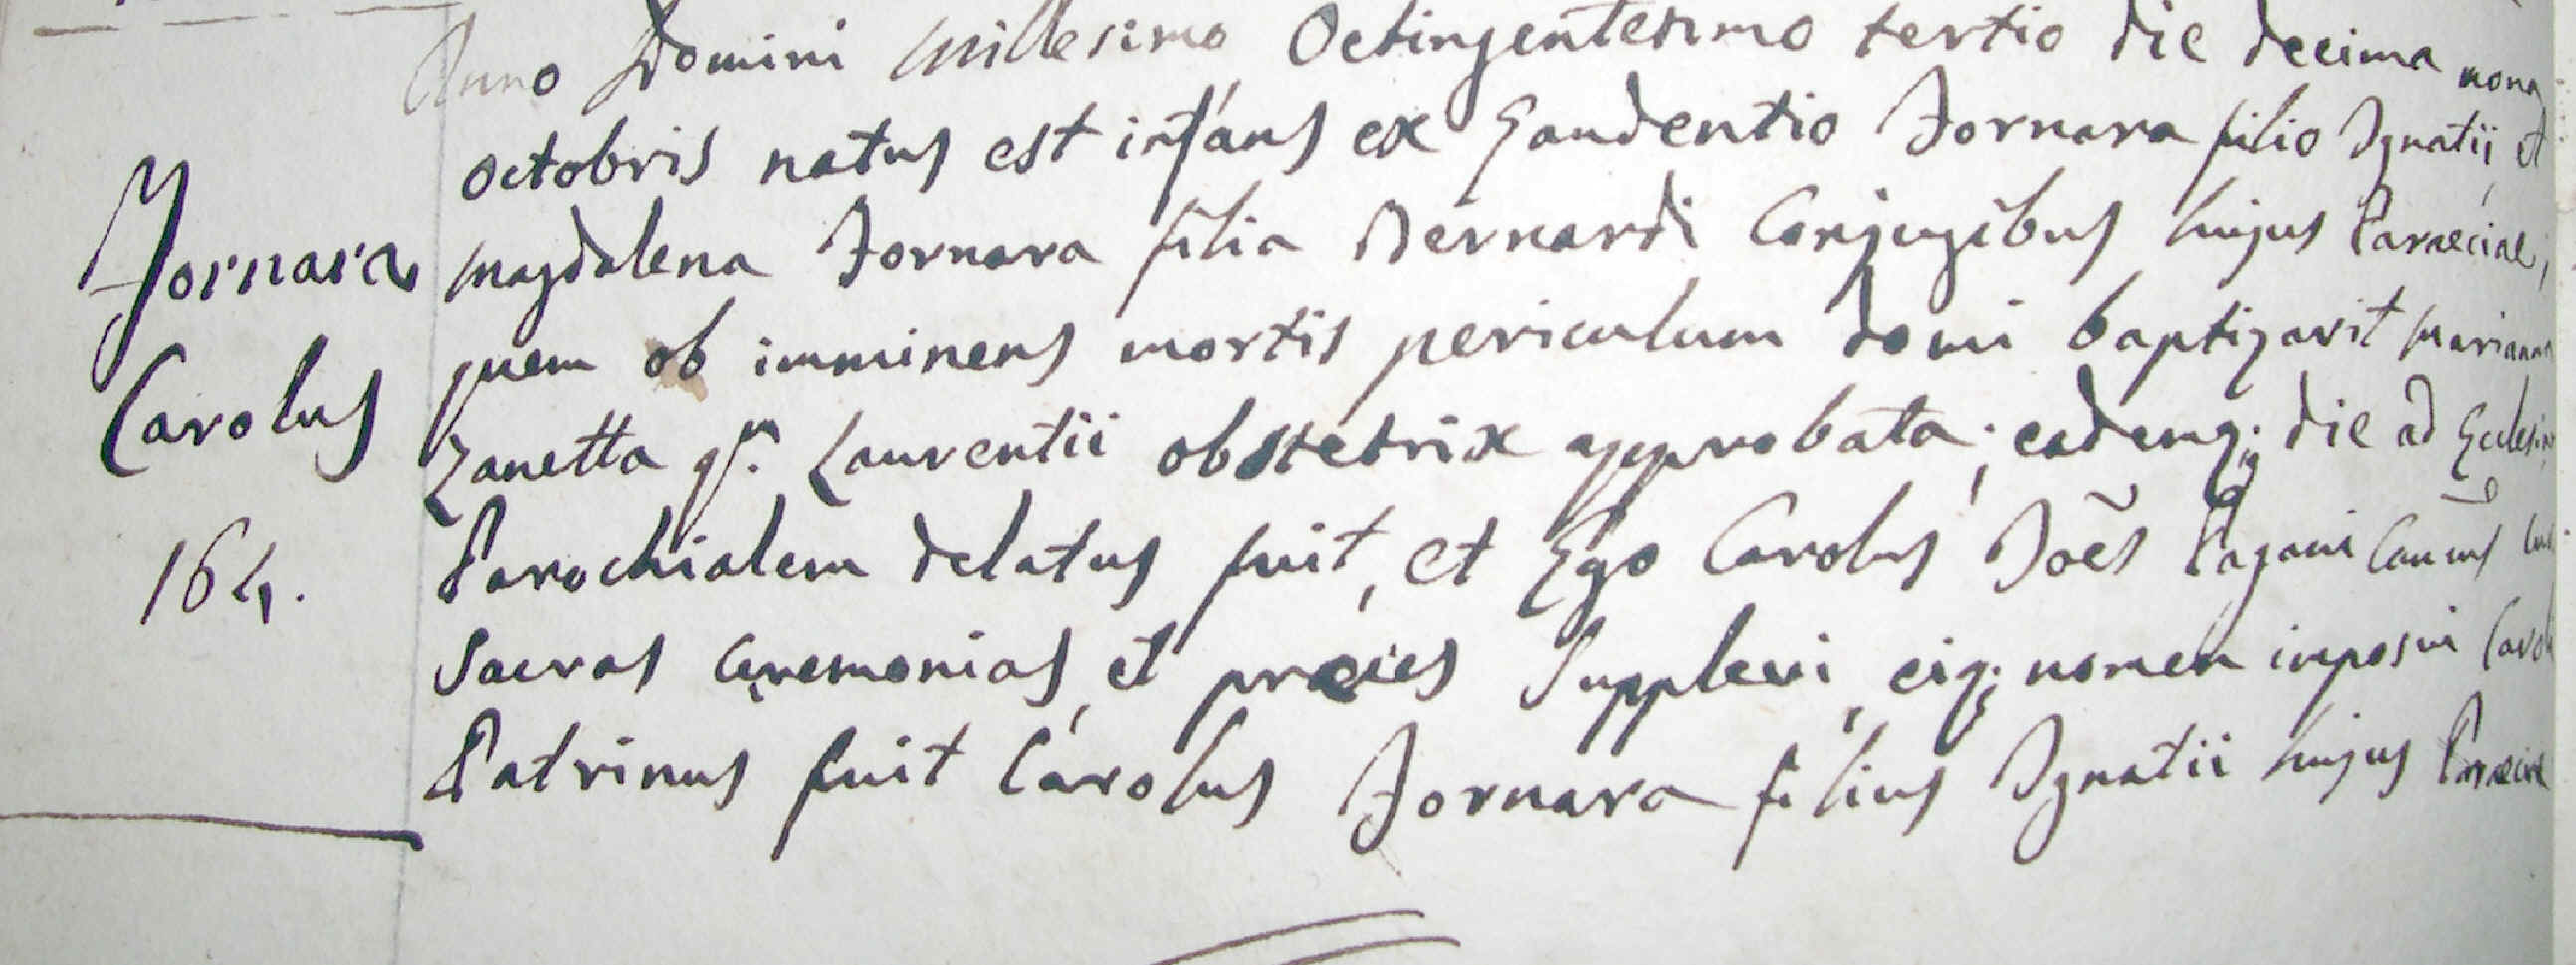 Anno Domini Millesimo Octingentesimo tertio die decima nona
octobris natus est infans ex Gaudentio Fornara filio Ignatii, et
Magdalena Fornara filia Bernardi Conjugibus hujus Paraeciae,
quem ob imminens mortis periculum domi baptizavit Marianna
Zanetta qm. Laurentii obstetrix approbata; eademq; die ad Ecclesiam
Parochialem delatus fuit, et Ego Carolus Joēs Pagani Can.us
Sacras Ceremonias, et praeces Supplevi, eiq; nomen imposui Caroli
Patrinus fuit Carolus Fornara filius Ignatii hujus Paraeciae
Fornara
Carolus
164.